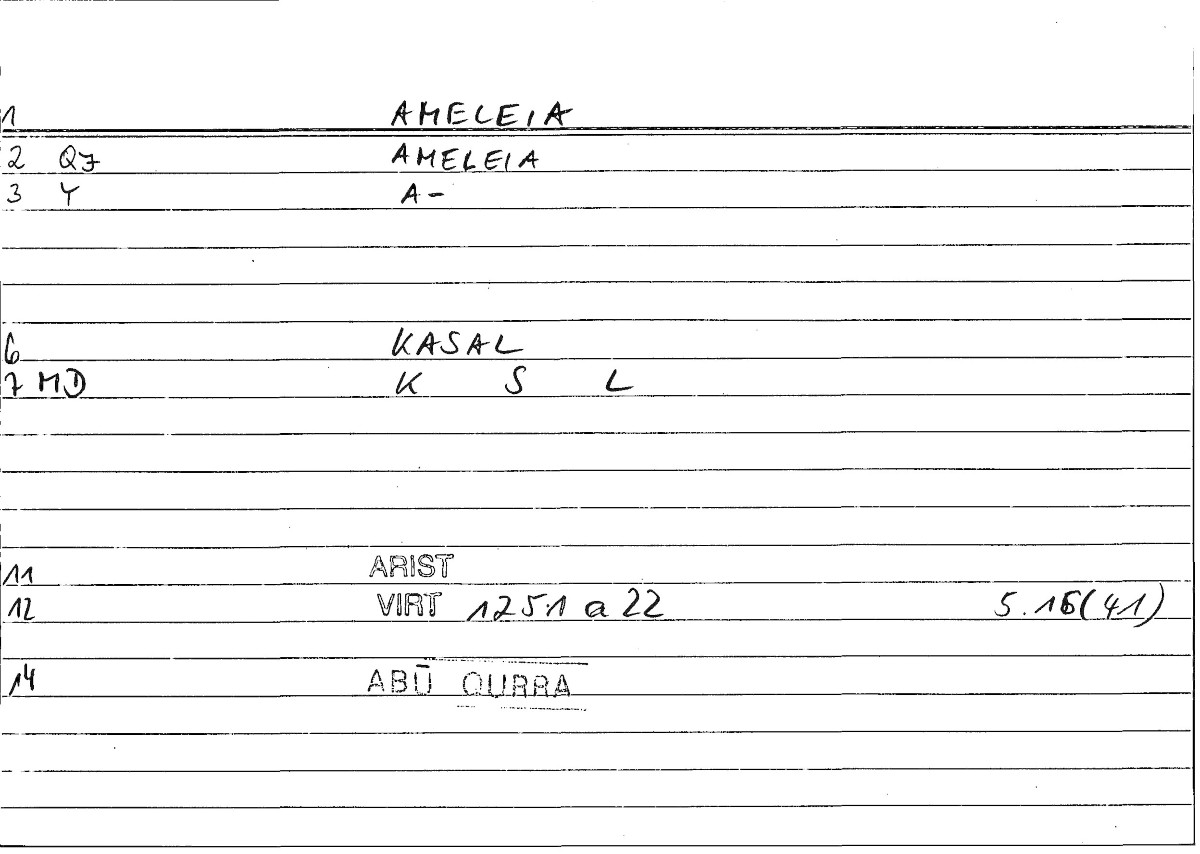 1 AMELEIA
2 Q7 AMELEIA
3 Y A-
6 KASAL
7 MD K S L
11 ARIST
12 VIRT 1251 a 22 5.16(41)
14 ABŪ QURRA